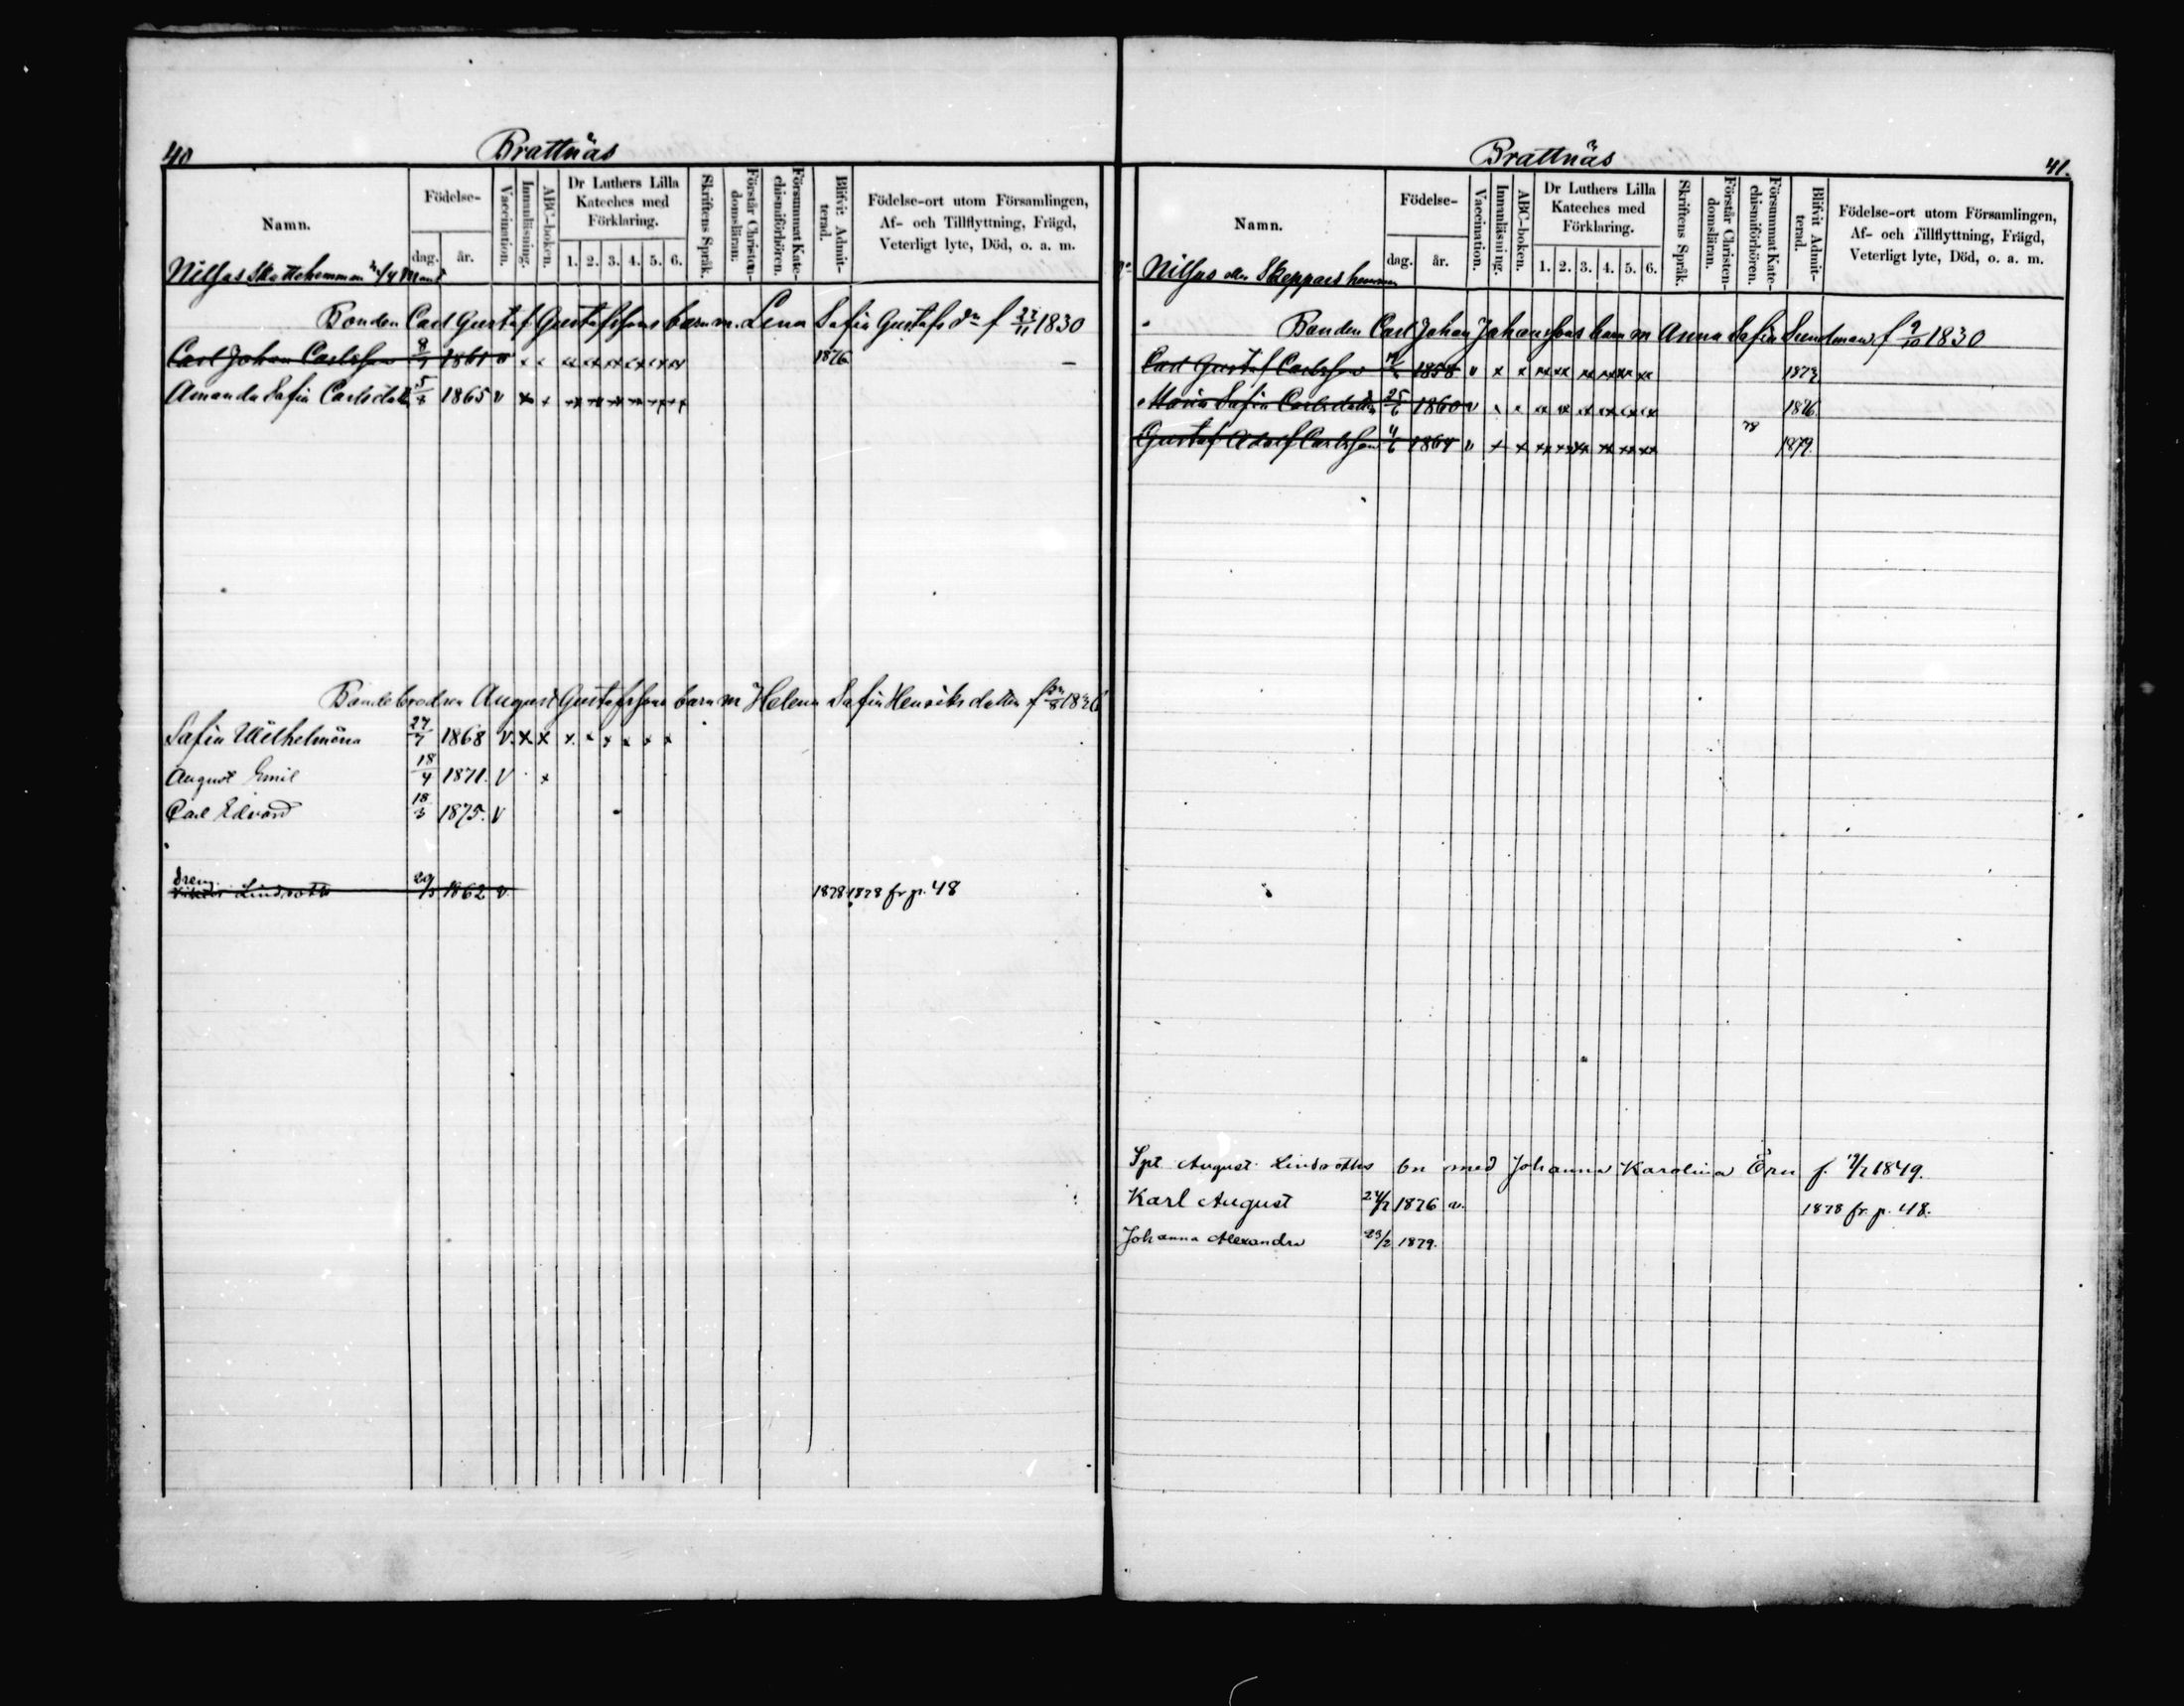 40
Brattnäs
Namn.
Födelse-
dag.
år.
Vaccination.
Innanläsning.
ABC-boken.
Dr Luthers Lilla
Kateches med
Förklaring.
1. 2. 3. 4. 5. 6.
Skriftens Språk.
Förstår Christen-
domsläran.
Försummat Kate-
chismiförhören.
Blifvit Admit-
terad.
Födelse-ort utom Församlingen,
Af- och Tillflyttning, Frägd,
Veterligt lyte, Död, o. a. m.
Nilsas Skattehemman
Bonden Carl Gustaf Gustafssons barn m. Lena Sofia Gustafs dr f 23/11 1830
Carl Johan Carlsson 1861 v x x xx xx xx xx xx xx 1876 –
Amanda Sofia Carlsdotter 1865 v x x xx xx xx xx xx xx
Bondebrodren August Gustafssons barn m Helena Sofia Henriksdotter
Sofia Wilhelmina 27/7 1868 v. x x x x x x x x
August Emil 18/4 1871. v x
Carl Edvard 18/3 1875. v
Dreng
Lindroth 1862 v. 1878 1878 fr p. 48
Brattnäs
41.
Namn.
Födelse-
dag.
år.
Vaccination.
Innanläsning.
ABC-boken.
Dr Luthers Lilla
Kateches med
Förklaring.
1. 2. 3. 4. 5. 6.
Skriftens Språk.
Förstår Christen-
domsläran.
Försummat Kate-
chismiförhören.
Blifvit Admit-
terad.
Födelse-ort utom Församlingen,
Af- och Tillflyttning, Frägd,
Veterligt lyte, Död, o. a. m.
Nilsas eller Skeppars hemman
Bonden Carl Johan Johanssons barn m Anna Sofia Sundman f 9/10 1830
Carl Gustaf Carlsson 1858 v x x xx xx xx xx xx xx 1873
Maria Sofia Carlsdotter 25/6 1860 v x x xx xx xx xx xx xx 1876
Gustaf Adolf Carlsson 1864 v x x xx xx xx xx xx xx 78 1879.
Spt August Lindroths bn med Johanna Karolina Örn 1849.
Karl August 24/7 1876 v. 1878 fr. p. 48.
Johanna Alexandra 23/2 1879.